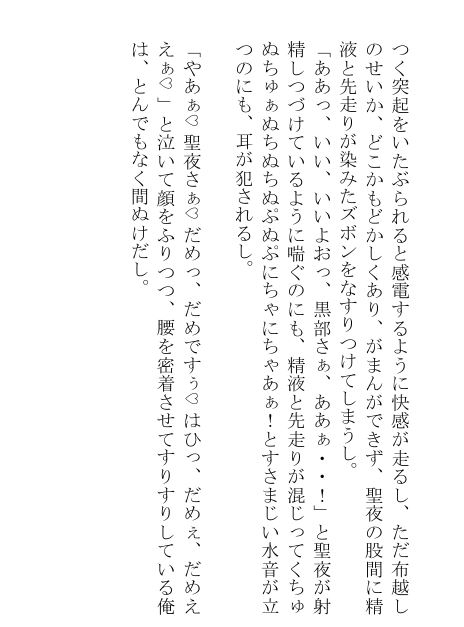 つく突起をいたぶられると感電するように快感が走るし、ただ布越し
のせいか、どこかもどかしくあり、がまんができず、聖夜の股間に精
液と先走りが染みたズボンをなすりつけてしまうし。
「ああっ、いい、いいよおっ、黒部さぁ、ああぁ・・！」と聖夜が射
精しつづけているように喘ぐのにも、精液と先走りが混じってくちゅ
ぬちゅぁぬちぬちぬぷぬぷにちゃにちゃあぁ！とすさまじい水音が立
つのにも、耳が犯されるし。
「やあぁ♡聖夜さぁ♡だめっ、だめですぅ♡はひっ、だめぇ、だめえ
えぁ♡」と泣いて顔をふりつつ、腰を密着させてすりすりしている俺
は、とんでもなく間ぬけだし。